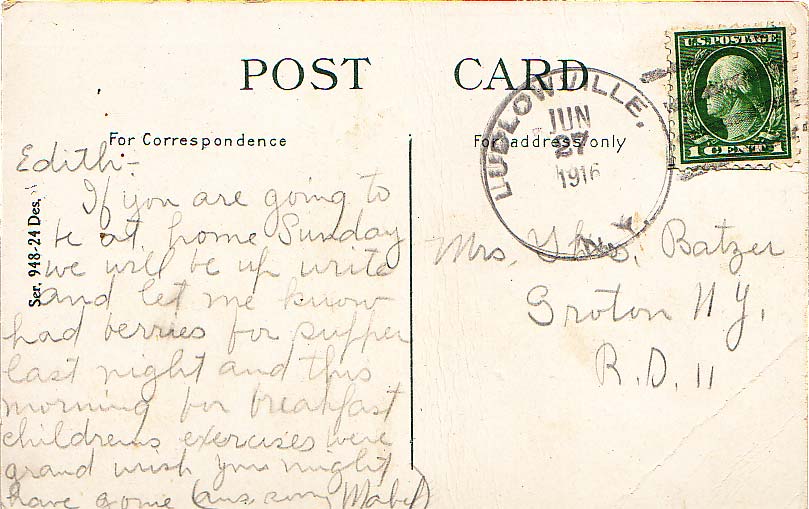 POST CARD
For Correspondence
For address only
U.S. POSTAGE
1 CENT 1
LUDLOWVILLE,
JUN
27
1916
N.Y.
Ser. 948-24 Des.
Edith:-
If you are going to
be at home Sunday
we will be up write
and let me know
had berries for supper
last night and this
morning for breakfast
childrens exercises were
grand wish you might
have gone Mabel
Mrs. Batzer
Groton N.Y.
R.D. 11